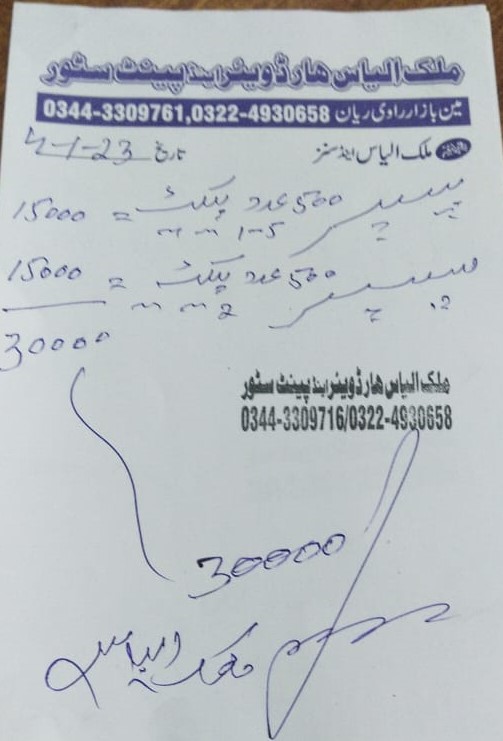 ملک الیاس ھارڈویئر اینڈ پینٹ سٹور
مین بازار راوی ریان 0344-3309761,0322-4930658
ملک الیاس اینڈ سنز
تاریخ 4-1-23
500 عدد پیکٹ = 15000
1-5
500 عدد پیکٹ = 15000
2
30000
ملک الیاس ھارڈویئر اینڈ پینٹ سٹور
0344-3309716/0322-4930658
30000
ملک الیاس